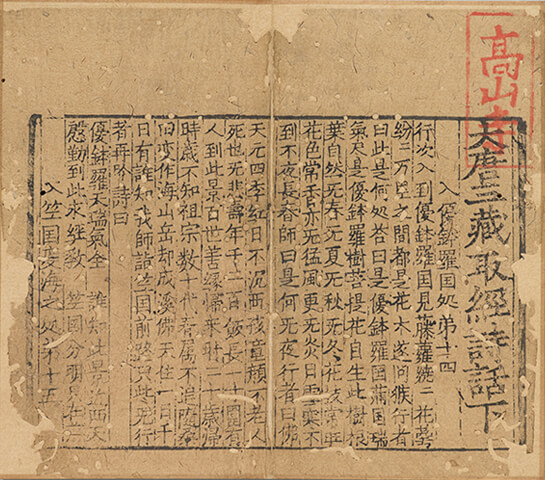 高山寺
大唐三藏取經詩話下
入優鉢羅国処第十四
行次入到優鉢羅国見藤蘿繞〻花萼
紛〻万里之間都是花木遂問猴行者
曰此是何処荅曰是優鉢羅国蒲国瑞
氣尽是優鉢羅樹菩提花自生此樹根
葉自然无春无夏无秋无冬花枝常旺
花色常香亦无猛風更无炎日雪寒不
到不夜長春師曰是何无夜行者曰佛
天无四季紅日不沉西孩童顔不老人
死也无悲壽年千二百飯長一十圍有
人到此景百世善緣歸來時二十歲歸
時歲不知祖宗數十代眷属不追隨桑
田変作海山岳却成溪佛天住一日千
日有誰知我師詣竺国前路只此无行
者再吟詩曰
優鉢羅天瑞氣全 誰知此景近西天
慇勤到此求經教 竺国分明只在
入竺国度海之処第十五